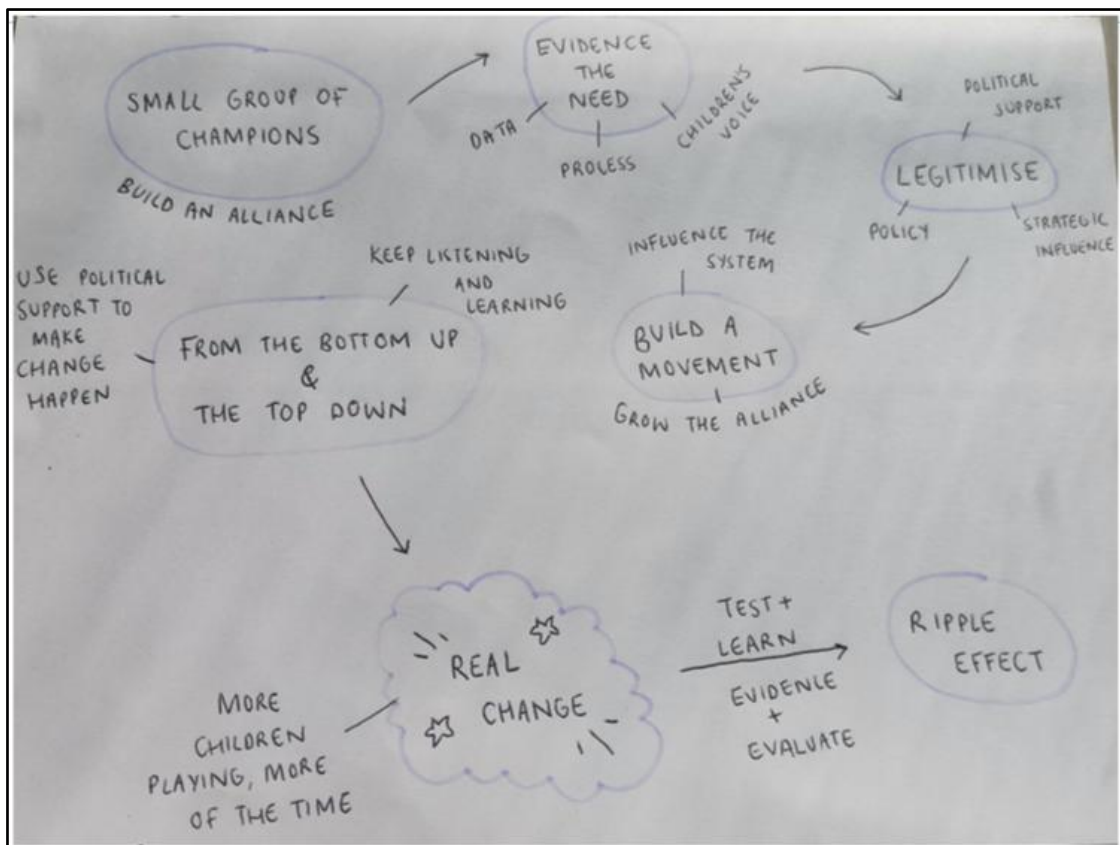 SMALL GROUP OF
CHAMPIONS
BUILD AN ALLIANCE
EVIDENCE
THE
NEED
DATA
PROCESS
CHILDREN'S
VOICE
POLITICAL
SUPPORT
LEGITIMISE
POLICY
STRATEGIC
INFLUENCE
INFLUENCE THE
SYSTEM
BUILD A
MOVEMENT
GROW THE ALLIANCE
KEEP LISTENING
AND
LEARNING
USE POLITICAL
SUPPORT TO
MAKE
CHANGE
HAPPEN
FROM THE BOTTOM UP
&
THE TOP DOWN
REAL
CHANGE
MORE
CHILDREN
PLAYING, MORE
OF THE TIME
TEST +
LEARN
EVIDENCE
+
EVALUATE
RIPPLE
EFFECT